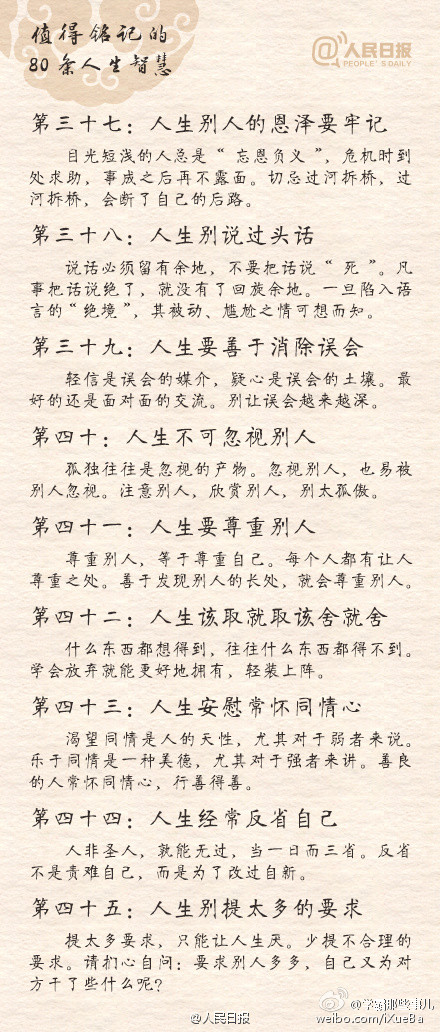 值得铭记的
80条人生智慧
@人民日报
PEOPLE'S DAILY
第三十七：人生别人的恩泽要牢记
目光短浅的人总是“忘恩负义”，危机时到
处求助，事成之后再不露面。切忌过河拆桥，过
河拆桥，会断了自己的后路。
第三十八：人生别说过头话
说话必须留有余地，不要把话说“死”。凡
事把话说绝了，就没有了回旋余地。一旦陷入语
言的“绝境”，其被动、尴尬之情可想而知。
第三十九：人生要善于消除误会
轻信是误会的媒介，疑心是误会的土壤。最
好的还是面对面的交流。别让误会越来越深。
第四十：人生不可忽视别人
孤独往往是忽视的产物。忽视别人，也易被
别人忽视。注意别人，欣赏别人，别太孤傲。
第四十一：人生要尊重别人
尊重别人，等于尊重自己。每个人都有让人
尊重之处。善于发现别人的长处，就会尊重别人。
第四十二：人生该取就取该舍就舍
什么东西都想得到，往往什么东西都得不到。
学会放弃就能更好地拥有，轻装上阵。
第四十三：人生安慰常怀同情心
渴望同情是人的天性，尤其对于弱者来说。
乐于同情是一种美德，尤其对于强者来讲。善良
的人常怀同情心，行善得善。
第四十四：人生经常反省自己
人非圣人，孰能无过，当一日而三省。反省
不是责难自己，而是为了改过自新。
第四十五：人生别提太多的要求
提太多要求，只能让人生厌。少提不合理的
要求。请扪心自问：要求别人多多，自己又为对
方干了些什么呢？
@人民日报
weibo.com/iXue8a